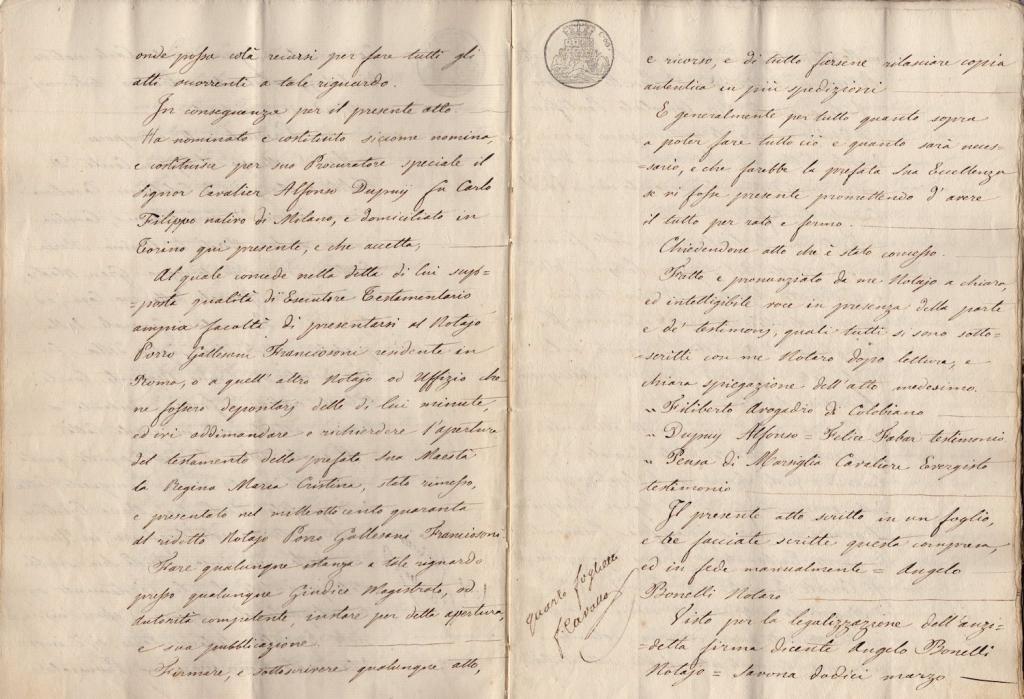 onde possa colà recarsi per fare tutti gli
atti occorrenti a tale riguardo.
In conseguenza per il presente atto
Ha nominato e costituito siccome nomina,
e costituisce per suo Procuratore speciale il
Signor Cavalier Alfonso Dupuy fu Carlo
Filippo nativo di Milano, e domiciliato in
Torino qui presente, e che accetta,
Al quale concede nella detta di lui sup=
=posta qualità di Esecutore Testamentario
ampia facoltà di presentarsi al Notajo
Porro Gallesani Franciosoni residente in
Roma, o a quell' altro Notajo od Uffizio che
ne fossero depositarj delle di lui minute,
ed ivi addimandare o richiedere l'apertura
del testamento della prefata Sua Maestà
la Regina Maria Cristina, stato rimesso,
e presentato nel mille otto cento quaranta
al ridetto Notajo Porro Gallesani Franciosoni
Fare qualunque istanza a tale riguardo
presso qualunque Giudice Magistrato, od
autorità competente, instare per detta apertura,
e sua pubblicazione.
Firmare, e sottoscrivere qualunque atto,
e ricorso, e di tutto farsene rilasciare copia
autentica in più spedizioni
E generalmente per tutto quanto sopra
a poter fare tutto ciò e quanto sarà neces=
=sario, e che farebbe la prefata Sua Eccellenza
se vi fosse presente promettendo d' avere
il tutto per rato e fermo.
Chiedendone atto che è stato concesso.
Fatto e pronunziato da me Notajo a chiara,
ed intelligibile voce in presenza della parte
e de' testimonj, quali tutti si sono sotto=
=scritti con me Notaro dopo lettura, e
chiara spiegazione dell'atto medesimo.
" Filiberto Avogadro di Colobiano
" Dupuy Alfonso = Felice Fabar testimonio
" Pensa di Marsiglia Cavaliere Evergisto
testimonio
Il presente atto scritto in un foglio,
e tre facciate scritte questa compresa,
ed in fede manualmente = Angelo
Bonelli Notaro
Visto per la legalizzazione dell'anzi=
detta firma dicente Angelo Bonelli
Notajo = Savona dodici marzo
quarto foglietto
f. Cavallo